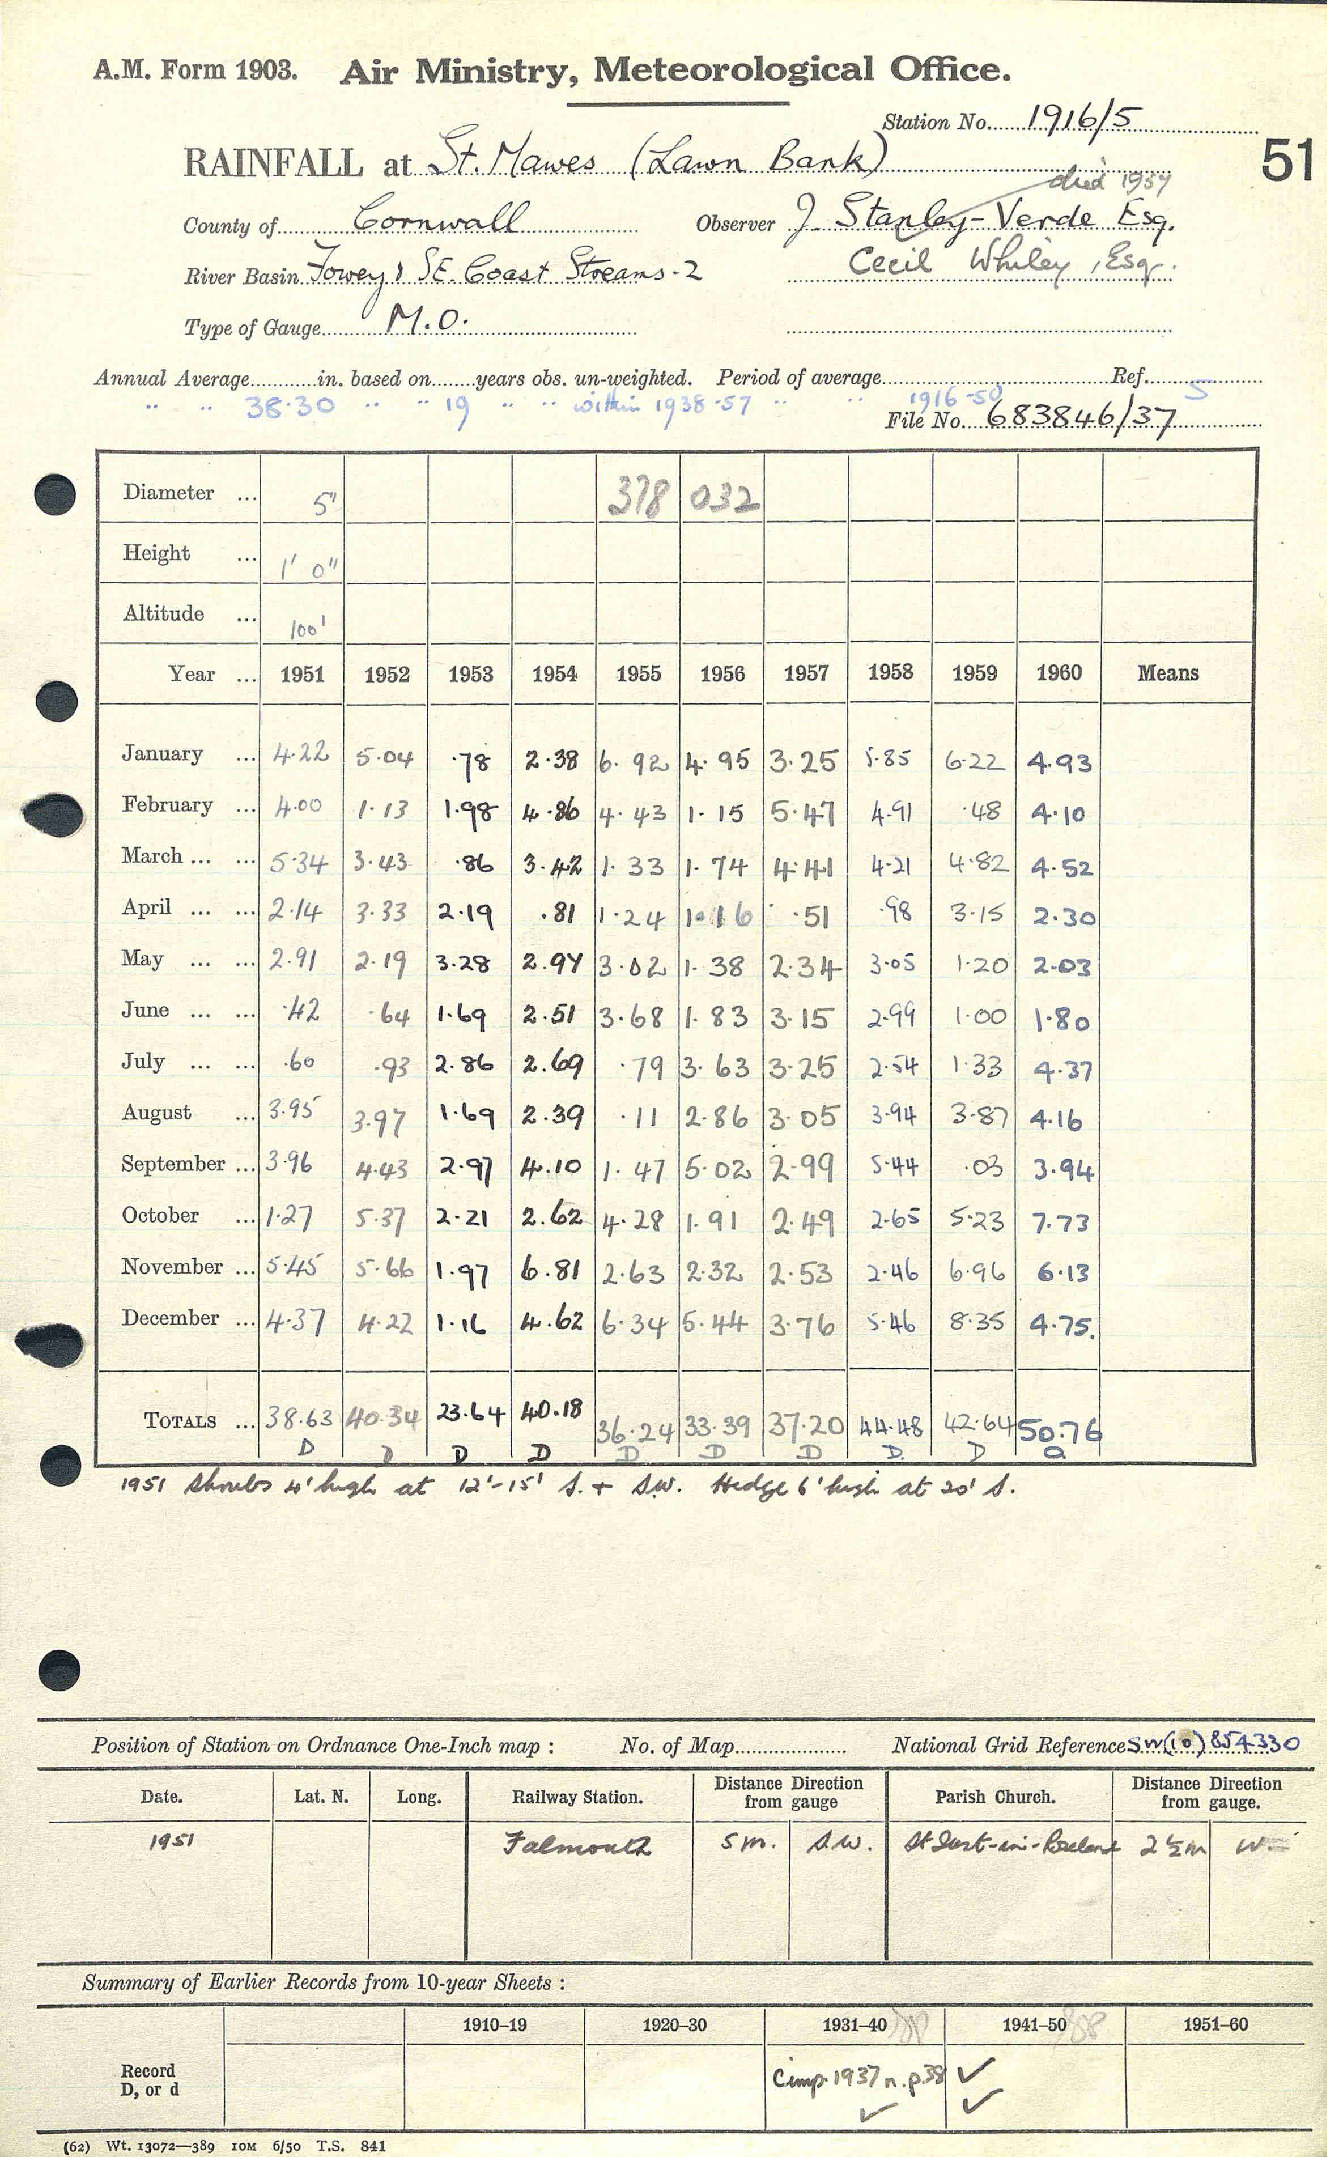 A.M. Form 1903. Air Ministry, Meteorological Office.
Station No. 1916/5
RAINFALL at St. Mawes (Lawn Bank)
51
died 1957
County of Cornwall Observer J. Stanley-Verde Esq.
River Basin Fowey & SE. Coast Streams-2 Cecil Whiley, Esq.
Type of Gauge M.O.
Annual Average in. based on years obs. un-weighted. Period of average Ref.
" " 38.30 " " 19 " " within 1938-57 " " 1916-50 S
File No. 683846/37
Diameter ... 5" 378 032
Height ... 1' 0"
Altitude ... 100'
Year ... 1951 1952 1953 1954 1955 1956 1957 1958 1959 1960 Means
January ... 4.22 5.04 .78 2.38 6.92 4.95 3.25 5.85 6.22 4.93
February ... 4.00 1.13 1.98 4.86 4.43 1.15 5.47 4.91 .48 4.10
March ... ... 5.34 3.43 .86 3.42 1.33 1.74 4.41 4.21 4.82 4.52
April ... ... 2.14 3.33 2.19 .81 1.24 1.16 .51 .98 3.15 2.30
May ... ... 2.91 2.19 3.28 2.97 3.02 1.38 2.34 3.05 1.20 2.03
June ... ... .42 .64 1.69 2.51 3.68 1.83 3.15 2.99 1.00 1.80
July ... ... .60 .93 2.86 2.69 .79 3.63 3.25 2.54 1.33 4.37
August ... 3.95 3.97 1.69 2.39 .11 2.86 3.05 3.94 3.87 4.16
September ... 3.96 4.43 2.97 4.10 1.47 5.02 2.99 5.44 .03 3.94
October ... 1.27 5.37 2.21 2.62 4.28 1.91 2.49 2.65 5.23 7.73
November ... 5.45 5.66 1.97 6.81 2.63 2.32 2.53 2.46 6.96 6.13
December ... 4.37 4.22 1.16 4.62 6.34 5.44 3.76 5.46 8.35 4.75.
TOTALS ... 38.63 40.34 23.64 40.18 36.24 33.39 37.20 44.48 42.64 50.76
D D D D D D D D D
1951 Shrubs 4' high at 12'-15' S. + SW. Hedge 6' high at 20' S.
Position of Station on Ordnance One-Inch map : No. of Map National Grid Reference SW(10)854330
Date. Lat. N. Long. Railway Station. Distance from gauge Direction Parish Church. Distance from gauge. Direction
1951 Falmouth 5 m. S.W. St Just-in-Roseland 2½m W
Summary of Earlier Records from 10-year Sheets :
1910–19 1920–30 1931–40 1941–50 1951–60
Record D, or d 1937 n.p.38 ✓ ✓ ✓
(62) Wt. 13072—389 10M 6/50 T.S. 841